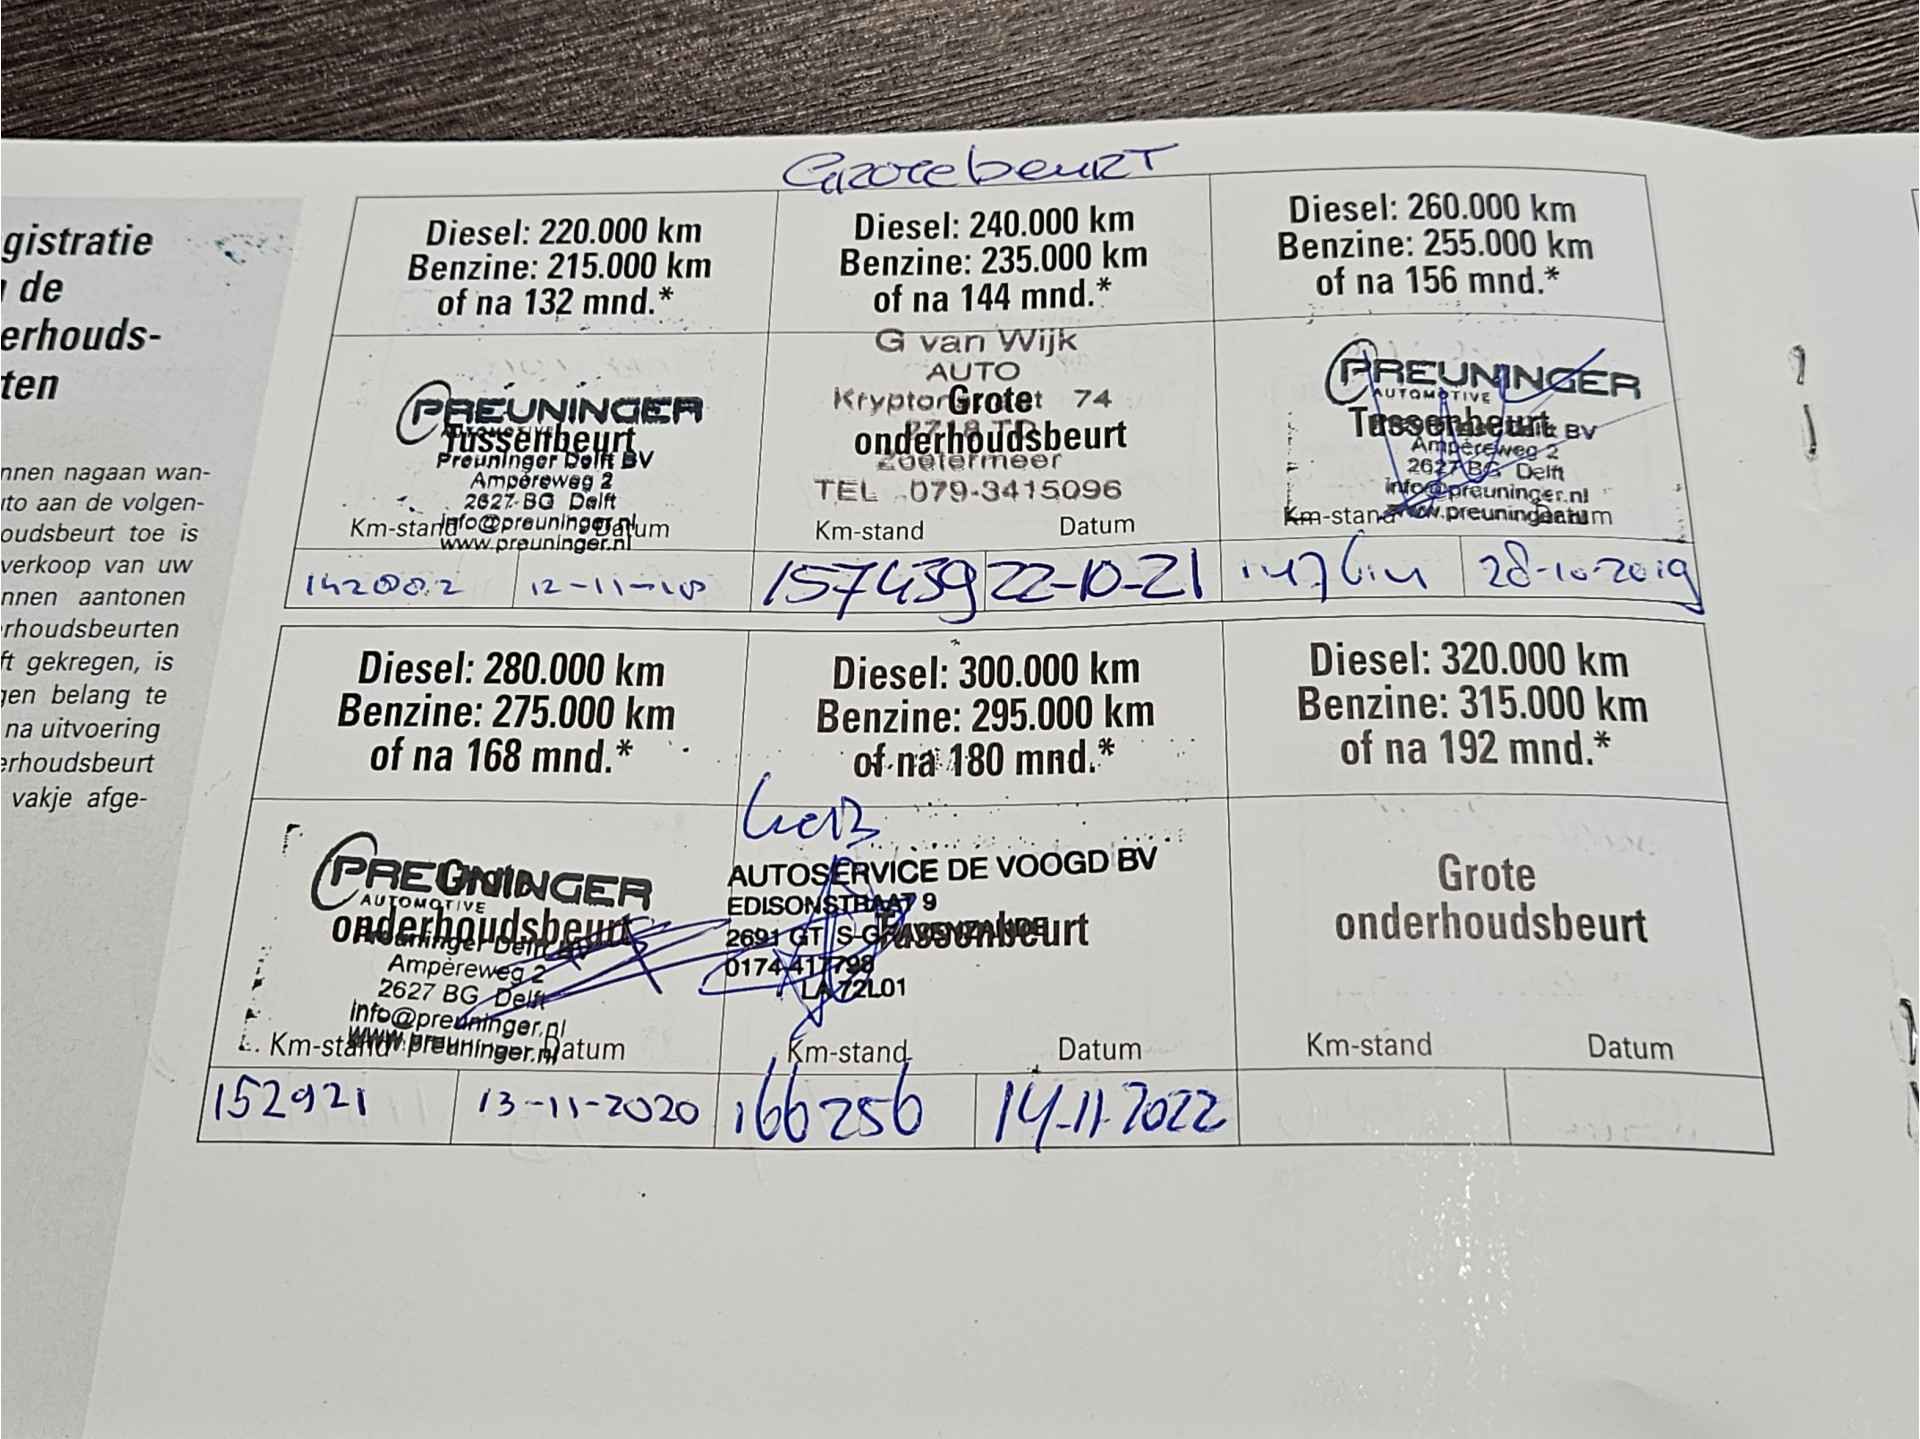 Grote beurt
gistratie
de
erhouds-
ten
nnen nagaan wan-
uto aan de volgen-
oudsbeurt toe is
verkoop van uw
nnen aantonen
rhoudsbeurten
ft gekregen, is
gen belang te
na uitvoering
erhoudsbeurt
vakje afge-
Diesel: 220.000 km
Benzine: 215.000 km
of na 132 mnd.*
PREUNINGER
AUTOMOTIVE
Tussenbeurt
Preuninger Delft BV
Ampèreweg 2
2627 BG Delft
info@preuninger.nl
www.preuninger.nl
Km-stand Datum
12-11-18
Diesel: 240.000 km
Benzine: 235.000 km
of na 144 mnd.*
G van Wijk
AUTO
74
Grote
onderhoudsbeurt
Zoetermeer
TEL 079-3415096
Km-stand Datum
157439 22-10-21
Diesel: 260.000 km
Benzine: 255.000 km
of na 156 mnd.*
PREUNINGER
AUTOMOTIVE
Tussenbeurt
BV
Ampèreweg 2
2627 BG Delft
info@preuninger.nl
www.preuninger.nl
Km-stand Datum
28-10-2019
Diesel: 280.000 km
Benzine: 275.000 km
of na 168 mnd.*
PREUNINGER
AUTOMOTIVE
Grote
onderhoudsbeurt
Preuninger Delft BV
Ampèreweg 2
2627 BG Delft
info@preuninger.nl
www.preuninger.nl
Km-stand Datum
152921 13-11-2020
Diesel: 300.000 km
Benzine: 295.000 km
of na 180 mnd.*
AUTOSERVICE DE VOOGD BV
EDISONSTRAAT 9
2691 GT S-GRAVENZANDE
Tussenbeurt
0174-417798
LA 72L01
Km-stand Datum
166256 14-11-2022
Diesel: 320.000 km
Benzine: 315.000 km
of na 192 mnd.*
Grote
onderhoudsbeurt
Km-stand Datum